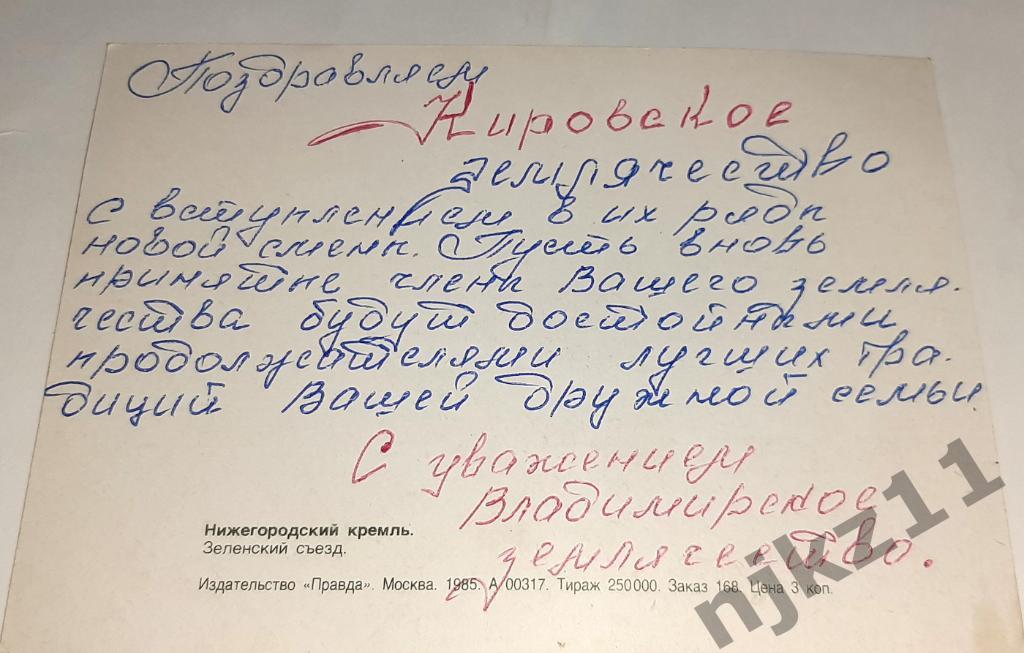 Поздравляем
Кировское
землячество
с вступлением в их ряды
новой смены. Пусть вновь
принятые члены Вашего земля-
чества будут достойными
продолжателями лучших тра-
диций Вашей дружной семьи
С уважением
Владимирское
землячество.
Нижегородский кремль.
Зеленский съезд.
Издательство «Правда». Москва. 1985. А 00317. Тираж 250000. Заказ 168. Цена 3 коп.
njkz11